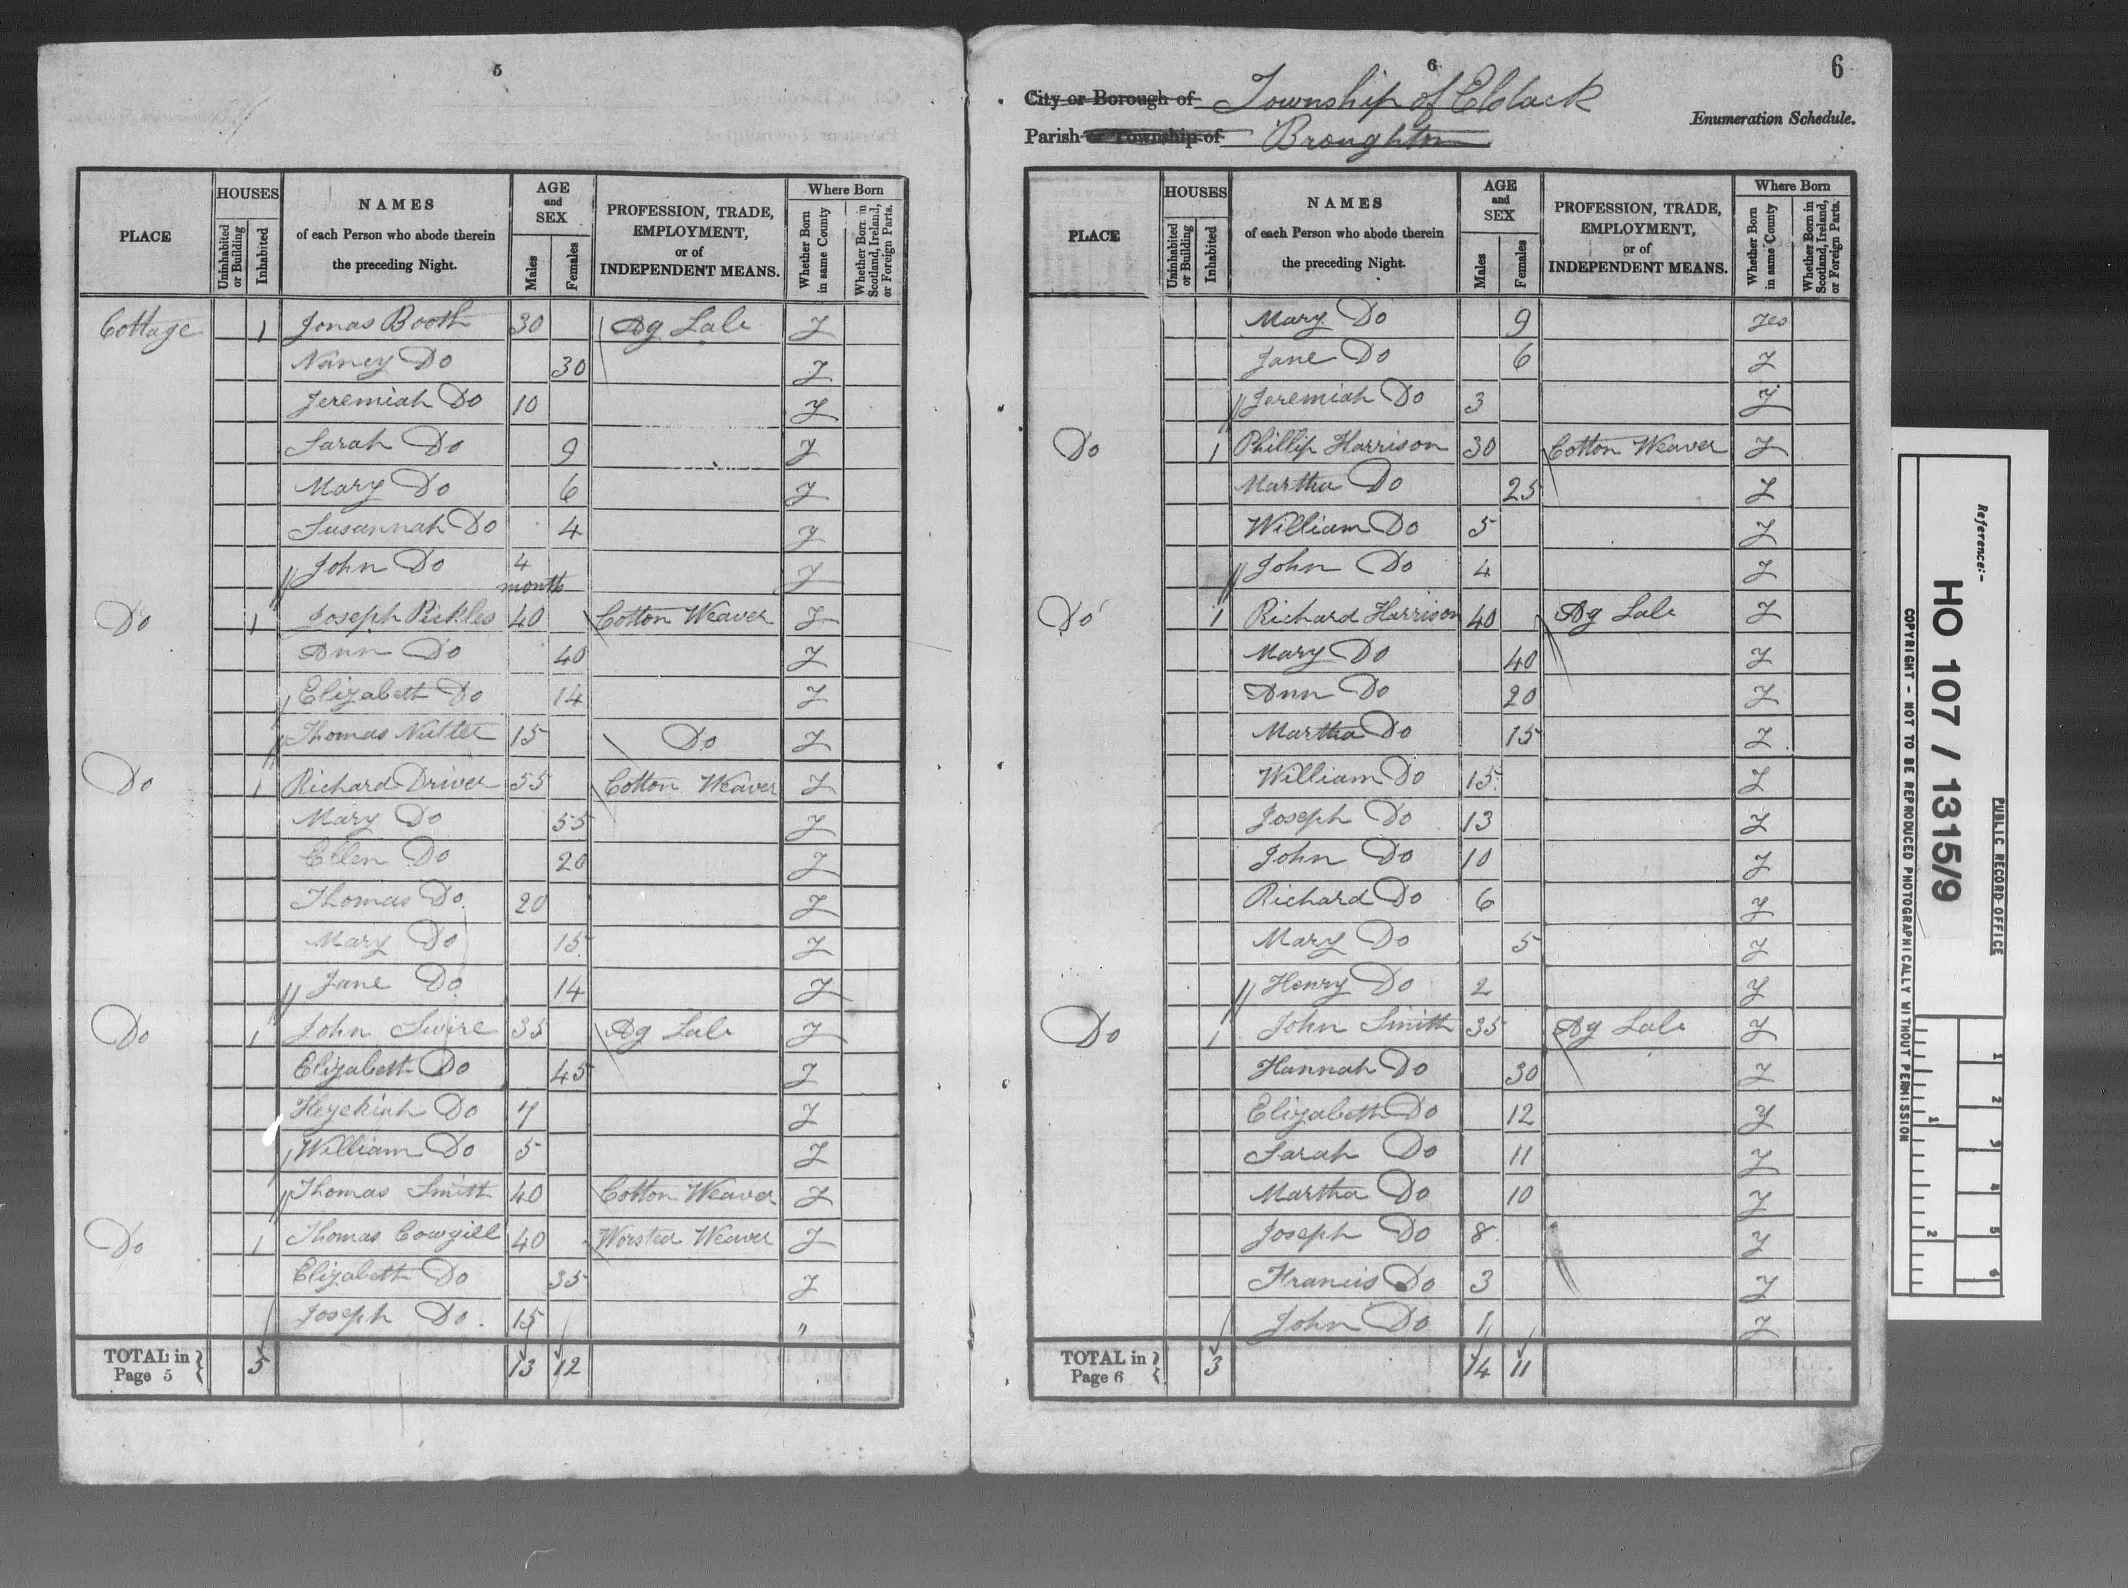 5
PLACE
HOUSES
Uninhabited or Building
Inhabited
NAMES
of each Person who abode therein
the preceding Night.
AGE
and
SEX
Males
Females
PROFESSION, TRADE,
EMPLOYMENT,
or of
INDEPENDENT MEANS.
Where Born
Whether Born in same County
Whether Born in Scotland, Ireland, or Foreign Parts.
Cottage 1 Jonas Booth 30 Ag Lab Y
Nancy Do 30 Y
Jeremiah Do 10 Y
Sarah Do 9 Y
Mary Do 6 Y
Susannah Do 4 Y
John Do 4 month Y
Do 1 Joseph Pickles 40 Cotton Weaver Y
Ann Do 40 Y
Elizabeth Do 14 Y
Thomas Nutter 15 Do Y
Do 1 Richard Driver 55 Cotton Weaver Y
Mary Do 55 Y
Ellen Do 20 Y
Thomas Do 20 Y
Mary Do 15 Y
Jane Do 14 Y
Do 1 John Swire 35 Ag Lab Y
Elizabeth Do 45 Y
Hezekiah Do 7 Y
William Do 5 Y
Thomas Smith 40 Cotton Weaver Y
Do 1 Thomas Cowgill 40 Worsted Weaver Y
Elizabeth Do 35 Y
Joseph Do 15 "
TOTAL in Page 5 } 5 13 12
6
6
City or Borough of Township of Elslack
Enumeration Schedule.
Parish or Township of Broughton
PLACE
HOUSES
Uninhabited or Building
Inhabited
NAMES
of each Person who abode therein
the preceding Night.
AGE
and
SEX
Males
Females
PROFESSION, TRADE,
EMPLOYMENT,
or of
INDEPENDENT MEANS.
Where Born
Whether Born in same County
Whether Born in Scotland, Ireland, or Foreign Parts.
Mary Do 9 Yes
Jane Do 6 Y
Jeremiah Do 3 Y
Do 1 Phillip Harrison 30 Cotton Weaver Y
Martha Do 25 Y
William Do 5 Y
John Do 4 Y
Do 1 Richard Harrison 40 Ag Lab Y
Mary Do 40 Y
Ann Do 20 Y
Martha Do 15 Y
William Do 15 Y
Joseph Do 13 Y
John Do 10 Y
Richard Do 6 Y
Mary Do 5 Y
Henry Do 2 Y
Do 1 John Smith 35 Ag Lab Y
Hannah Do 30 Y
Elizabeth Do 12 Y
Sarah Do 11 Y
Martha Do 10 Y
Joseph Do 8 Y
Francis Do 3 Y
John Do 1 Y
TOTAL in Page 6 } 3 14 11
Reference:-
HO 107 / 1315/9
PUBLIC RECORD OFFICE
COPYRIGHT - NOT TO BE REPRODUCED PHOTOGRAPHICALLY WITHOUT PERMISSION
1
2
1
2
3
4
5
6